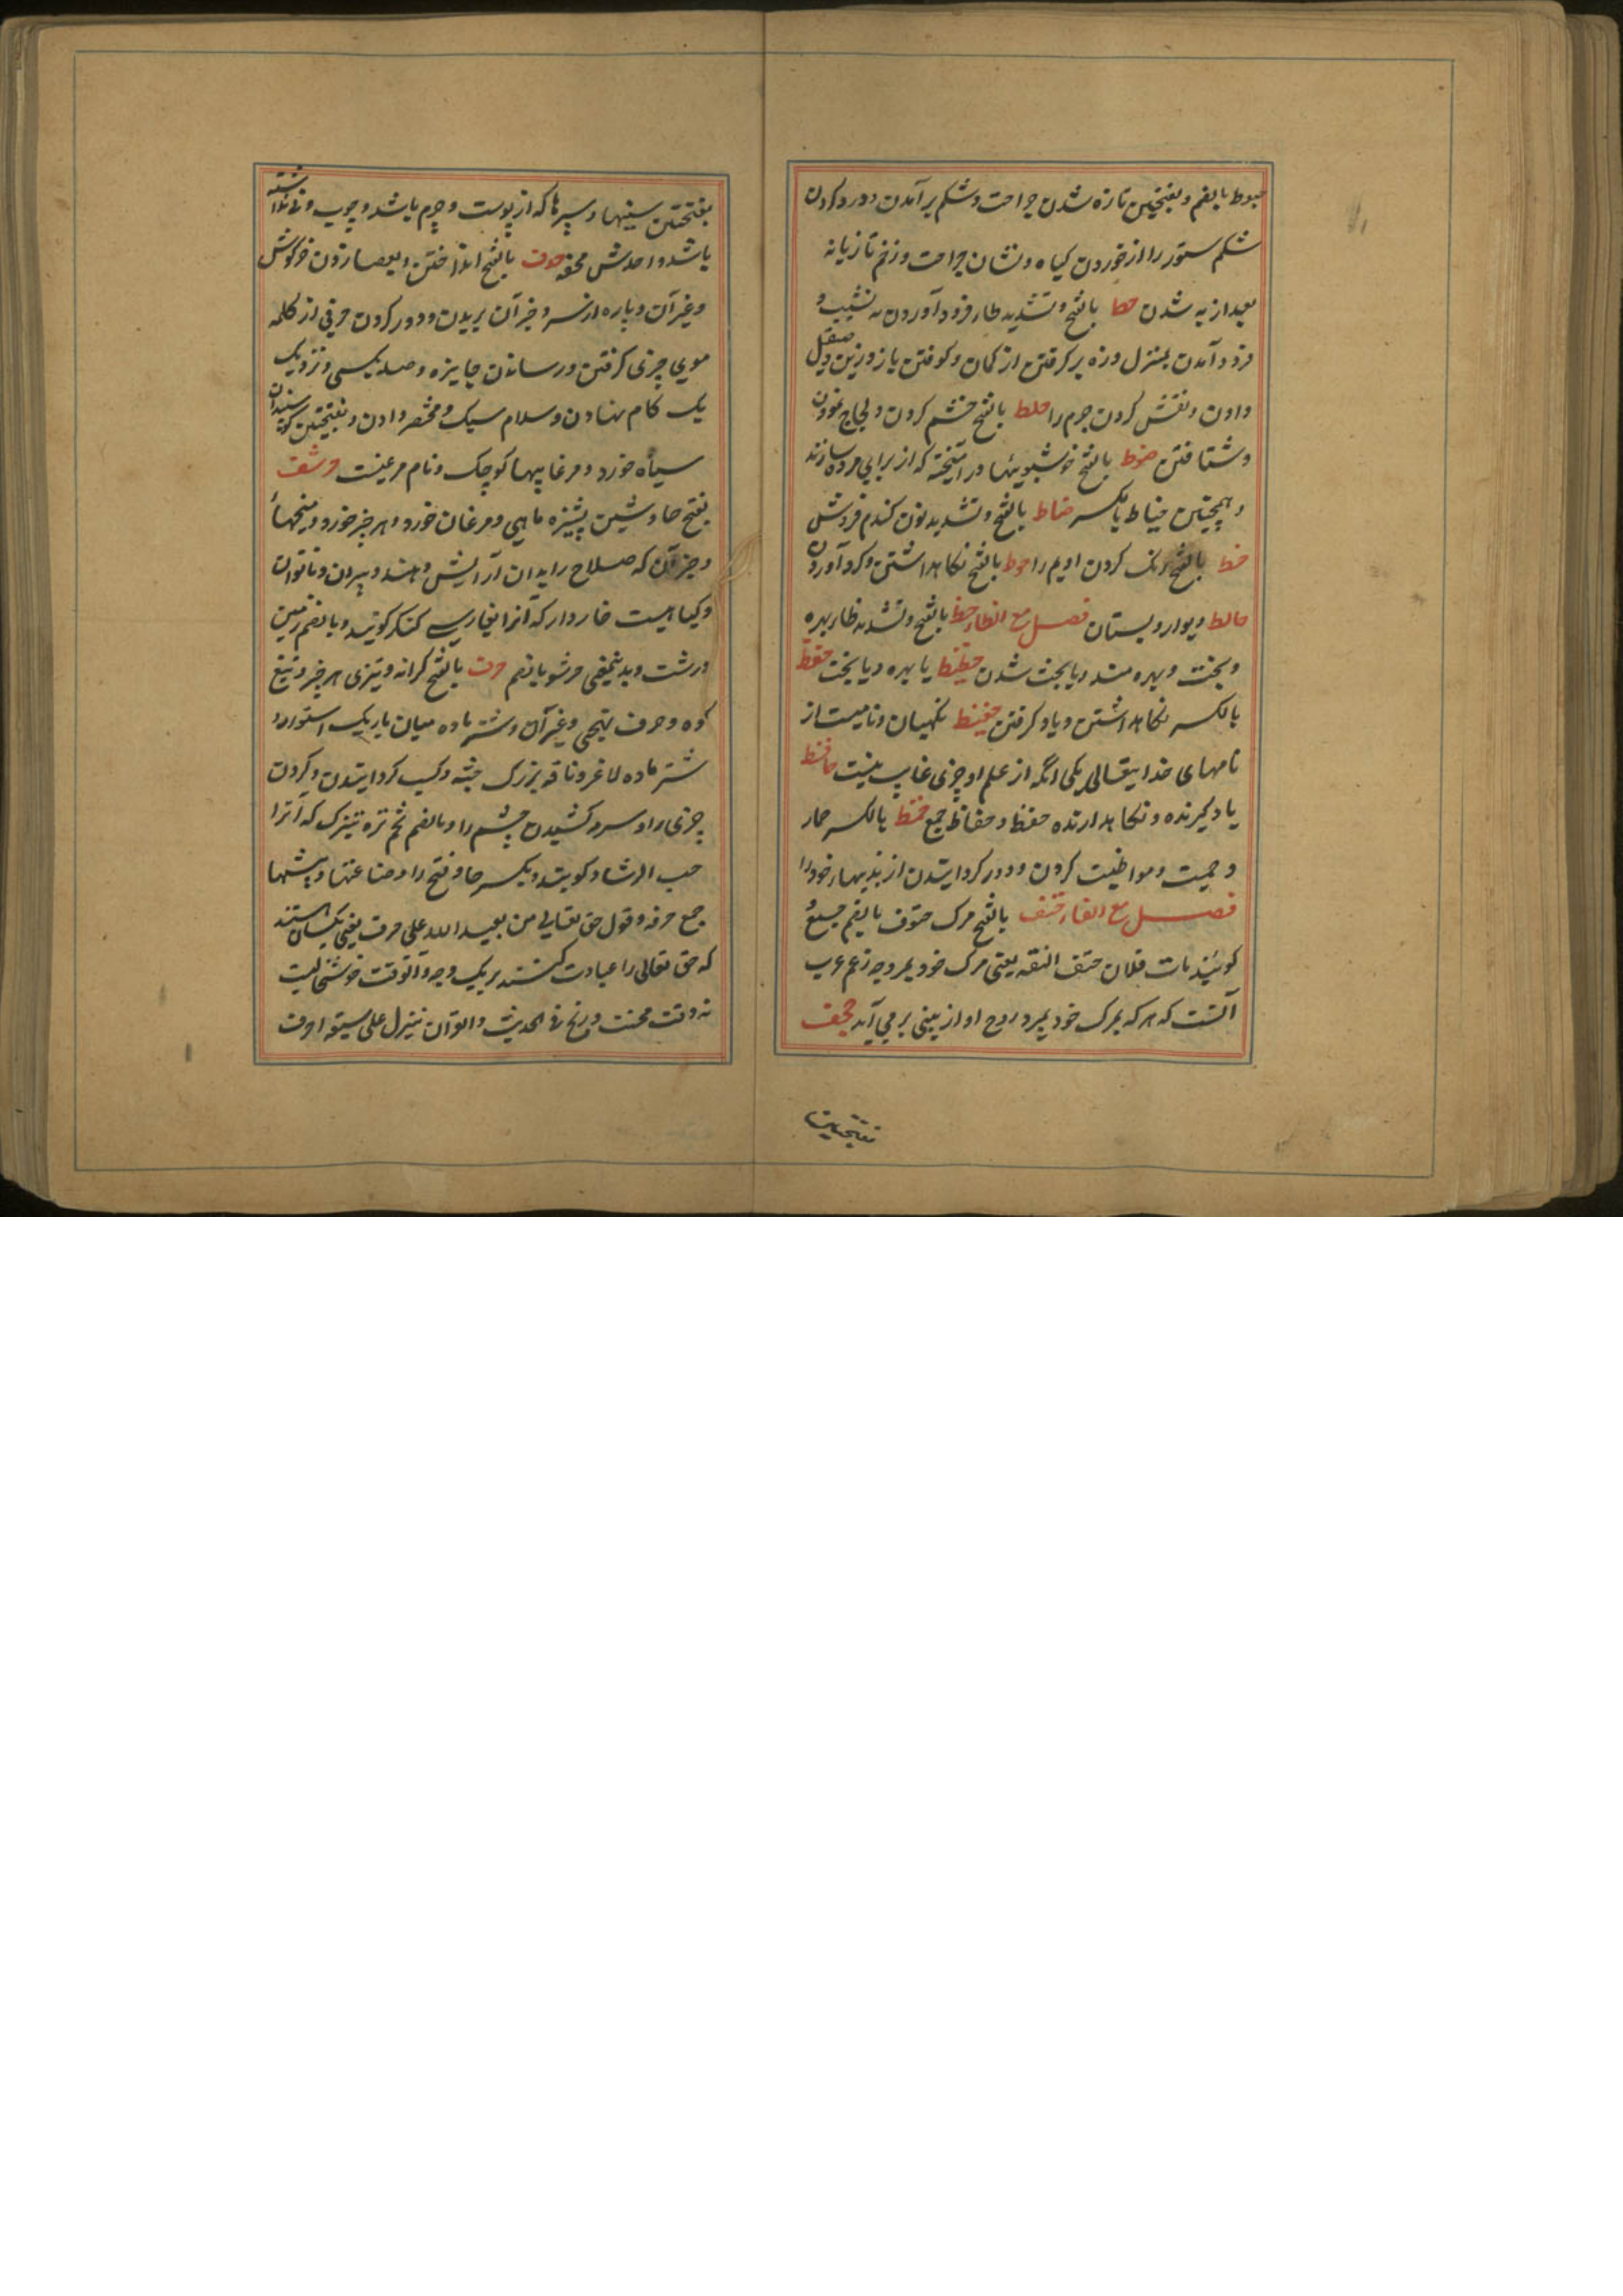 حبوط بالضم و بفتحتین تازه شدن جراحت و شکم برآمدن و درد کردن
شکم ستور را از خوردن کیاه و نشان جراحت و زخم تازیانه
بعد از به شدن حط بالفتح و تشدید طاء فرود آوردن به نشیب و
فرود آمدن بمنزل و زه برکرفتن از کمان و کوفتن بازو زین و صقل
دادن و نقش کردن جرم را حلط بالفتح خشم کردن و لجاج نمودن
و شتافتن حنوط بالفتح خوشبویئها در امیخته که از برای مرده سازند
و همچنین حناط بالکسر حناط بالفتح و تشدید نون کندم فروش
حنط بالفتح رنک کردن ادیم را حوط بالفتح نکاهداشتن و کرد آوردن
حائط دیوار و بستان فصل مع الظاء حظ بالفتح و تشدید ظا بهره
و بخت و بهره مند و با بخت شدن حظیظ با بهره و با بخت حفظ
بالکسر نکاهداشتن و یاد کرفتن حفیظ نکهبان و نامیست از
نامهای خدایتعالی یکی انکه از علم او چیزی غایب نیست حافظ
یاد کیرنده و نکاهدارنده حفظه و حفاظ جمع حفظ بالکسر عار
و حمیت و مواظبت کردن و دور کردانیدن از بدیها خود را
فصل مع الفاء حتف بالفتح مرک حتوف بالضم جمع و
کویند مات فلان حتف انفه یعنی مرک خود بمرد چه زعم عرب
آنست که هر که بمرک خود بمرد روح او از بینی بر می آید حجف
بفتحتین
بفتحتین سینها و سپرها که از پوست و چرم باشد و چوب و نی نداشته
باشد واحدش حجفه حذف بالفتح انداختن و بعصا زدن خرکوش
و غیر آن و پاره از سر و جز آن بریدن و دور کردن حرفی از کلمه
موی چیزی کرفتن و رساندن جایزه و صله بکسی و نزدیک
یک کام نهادن و سلام سبک و مختصر دادن و بفتحتین کوسپندان
سیاه خورد و مرغابیها کوچک و نام مرغیست حرشف
بفتح حا و شین پشیزه ماهی و مرغان خورد و هر چیز خورد و میخها
و جز آن که صلاح را بدان آرایش دهند و پیران و ناتوان
و کیاهیست خاردار که آنرا بفارسی کنکر کویند و بالضم زمین
درشت و بدینمعنی حرشو بالضم حرف بالفتح کرانه و تیزی هر چیز و تیغ
کوه و حرف تهجی و غیر آن و شتر ماده میان باریک استوار
شتر ماده لاغر و ناقه بزرک جثه و کسب کردانیدن و کردن
چیزی را و سرمه کشیدن چشم را و بالضم تخم تره تیزک که آنرا
حب الرشاد کویند و بکسر حا و فتح را صناعتها و پیشها
جمع حرفه و قول حق تعالی من یعبد الله علی حرف یعنی کسان هستند
که حق تعالی را عبادت کنند بر یک وجه و آن وقت خوشحالیست
نه وقت محنت و رنج فی الحدیث و القرآن نیزل علی سبعة احرف